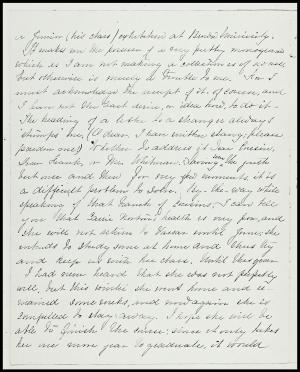 a Junior (his class) exhibition at Brown University.
It makes me the possessor of a very pretty monogram
which is I am not making a collection is of no use
but otherwise is merely a trouble to me. For I
must acknowledge the receipt of it, of course, and
I have not the least desire, or idea how, to do it.
The heading of a letter to a stranger always
"stumps" me, (O dear, I have written slang; please
pardon me.) Whether to address it Dear Cousin,
Dear Frank, or Mr. Whitman. Having seen the youth
but once and then for very few moments, it is
a difficult problem to solve. By-the-way while
speaking of that branch of Cousins, I can tell
you that health is very poor, and
she will not return to Vassar until June; she
intends to study some at home and thus try
and keep up with her class. Until this year
I had never heard that she was not perfectly
well, but this winter she went home and re-
mained some weeks, and now again she is
compelled to stay away. I hope she will be
able to finish the course; since it only takes
her one more year to graduate, it would